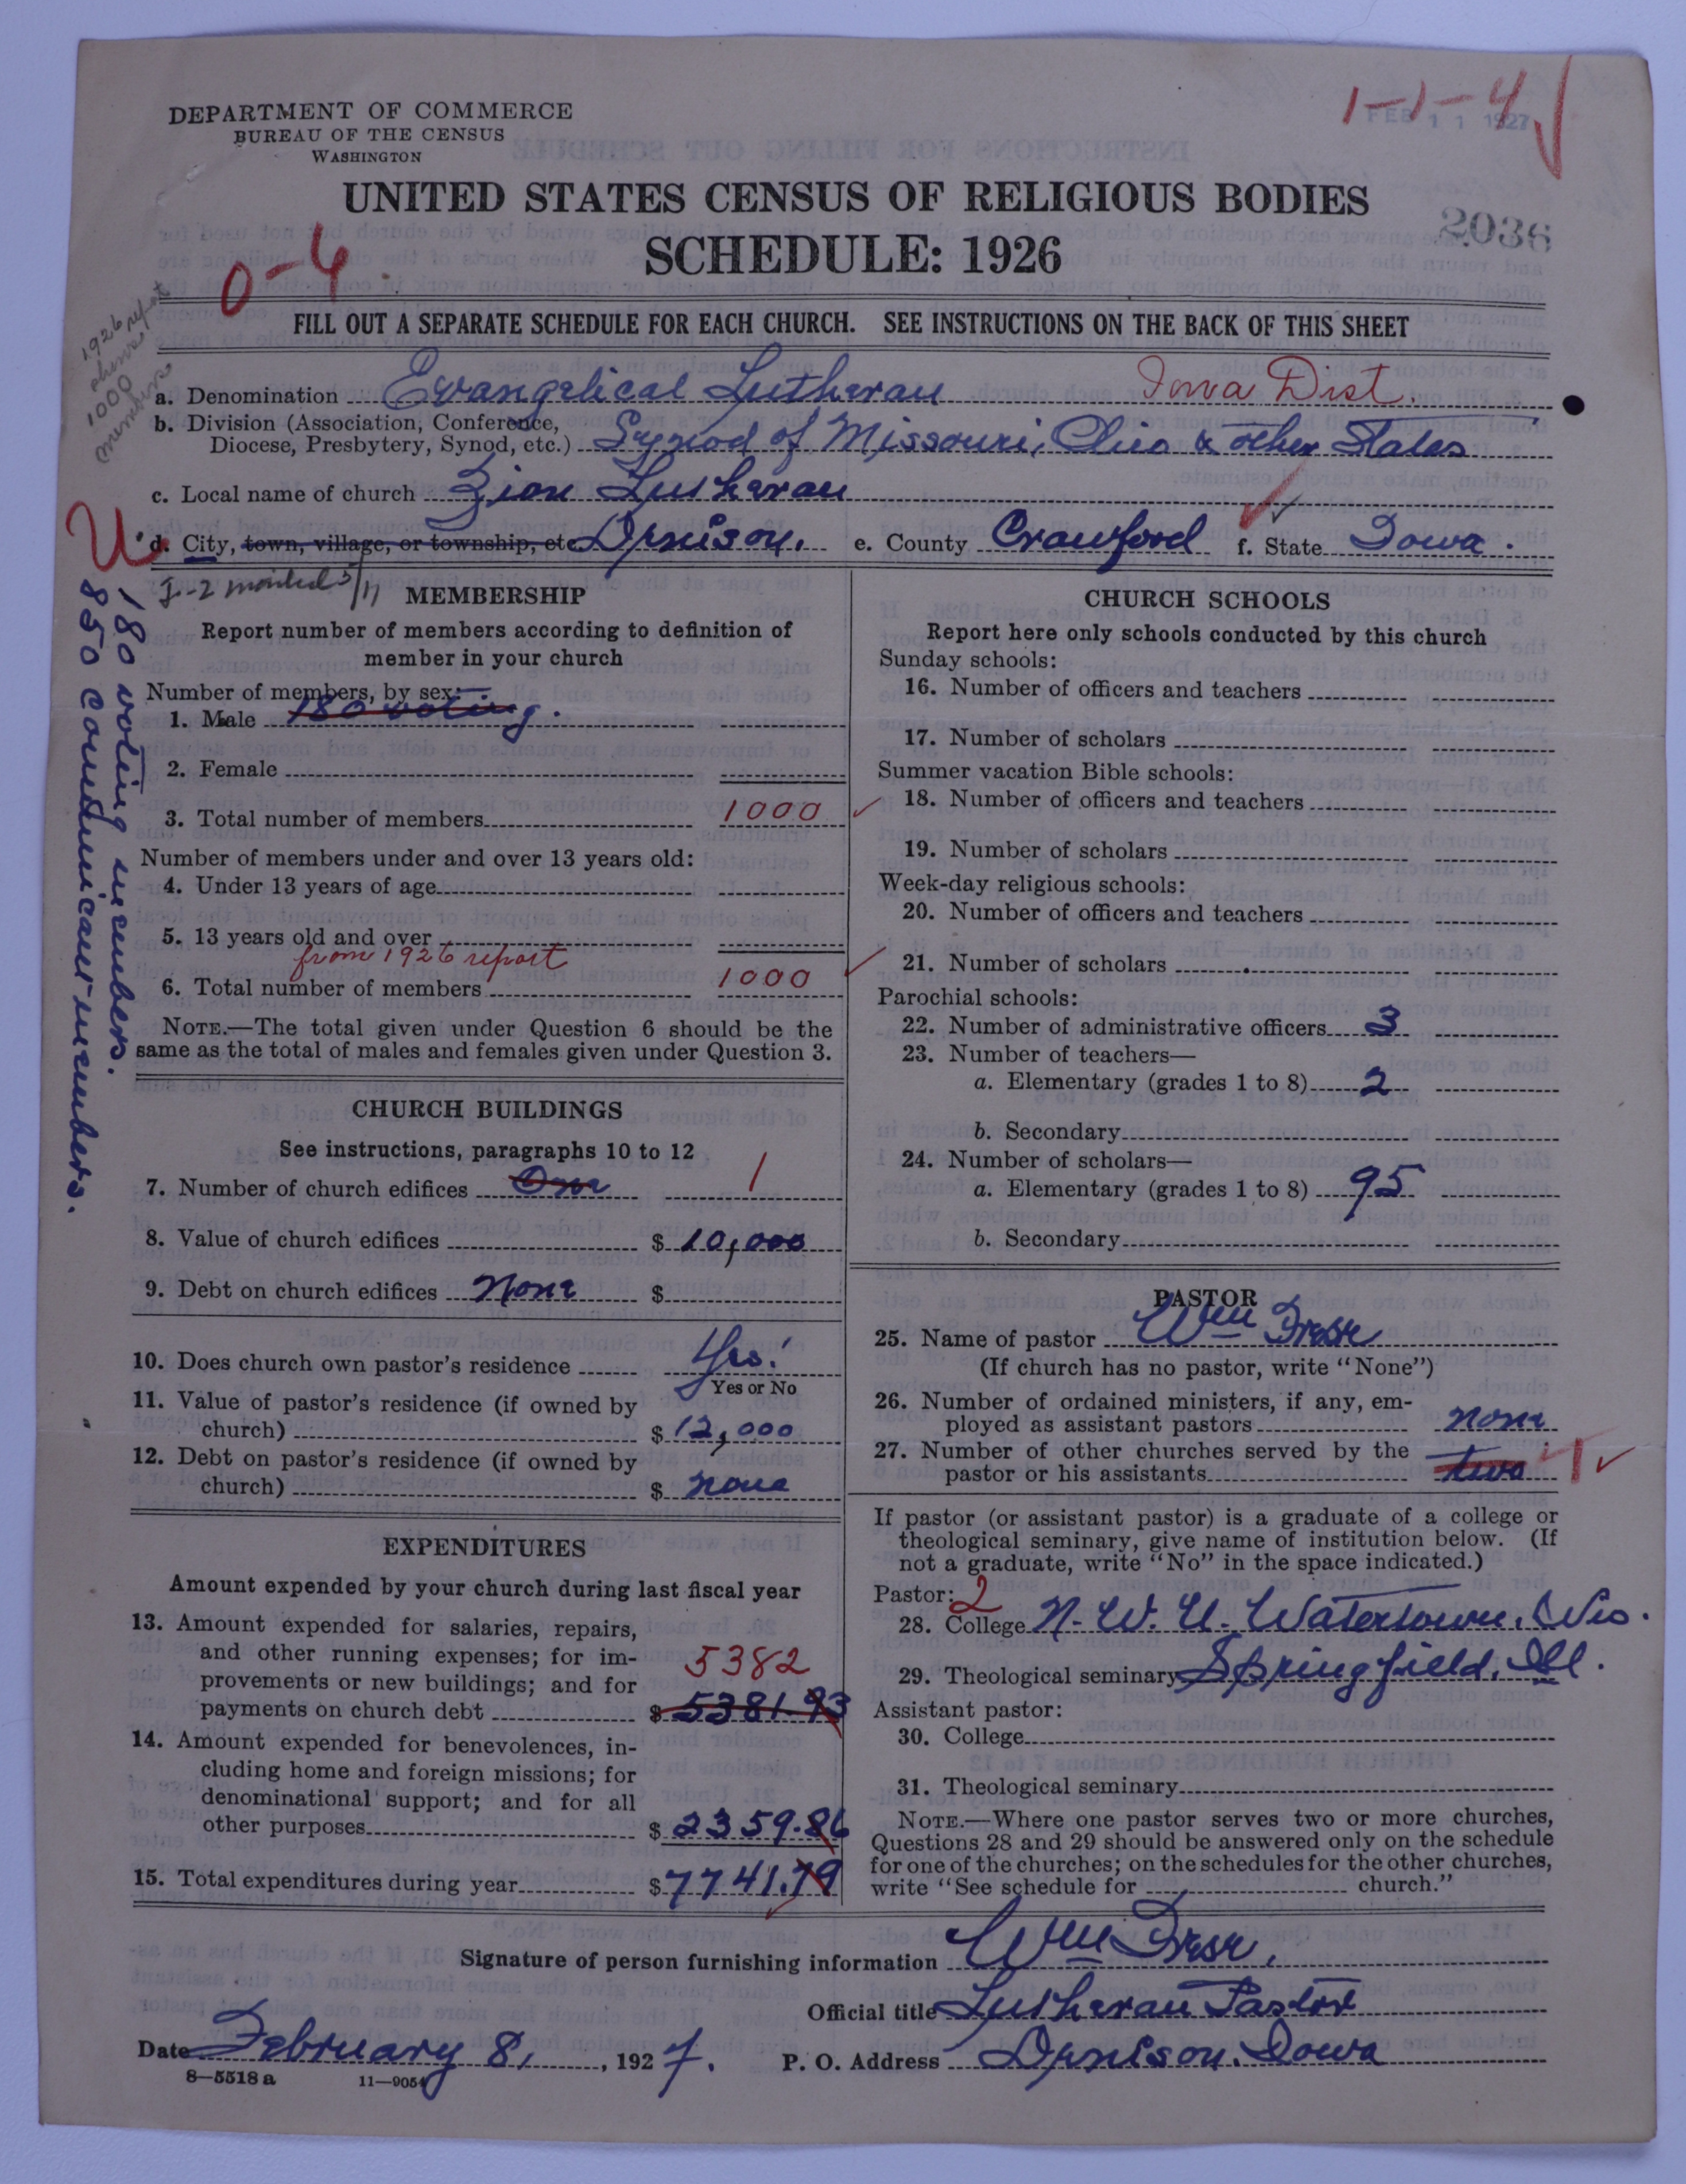 DEPARTMENT OF COMMERCE
BUREAU OF THE CENSUS
WASHINGTON
1-1-4
FEB 11 1927
UNITED STATES CENSUS OF RELIGIOUS BODIES
SCHEDULE: 1926
2036
0-4
1926 report
shows
1000
members
FILL OUT A SEPARATE SCHEDULE FOR EACH CHURCH. SEE INSTRUCTIONS ON THE BACK OF THIS SHEET
a. Denomination Evangelical Lutheran Iowa Dist.
b. Division (Association, Conference,
Diocese, Presbytery, Synod, etc.) Synod of Missouri, Ohio & other States
c. Local name of church Zion Lutheran
d. City, town, village, or township, etc. Denison. e. County Crawford f. State Iowa.
180 voting members.
850 communicant members.
MEMBERSHIP
Report number of members according to definition of
member in your church
Number of members, by sex:
1. Male 180 voting.
2. Female
3. Total number of members 1000
Number of members under and over 13 years old:
4. Under 13 years of age
5. 13 years old and over
from 1926 report
6. Total number of members 1000
NOTE.—The total given under Question 6 should be the
same as the total of males and females given under Question 3.
CHURCH BUILDINGS
See instructions, paragraphs 10 to 12
7. Number of church edifices One 1
8. Value of church edifices $ 10,000
9. Debt on church edifices None $
10. Does church own pastor's residence Yes.
Yes or No
11. Value of pastor's residence (if owned by
church) $ 12,000
12. Debt on pastor's residence (if owned by
church) $ none
EXPENDITURES
Amount expended by your church during last fiscal year
13. Amount expended for salaries, repairs,
and other running expenses; for im-
provements or new buildings; and for
5382
payments on church debt $ 5381.93
14. Amount expended for benevolences, in-
cluding home and foreign missions; for
denominational support; and for all
other purposes $ 2359.86
15. Total expenditures during year $ 7741.79
CHURCH SCHOOLS
Report here only schools conducted by this church
Sunday schools:
16. Number of officers and teachers
17. Number of scholars
Summer vacation Bible schools:
18. Number of officers and teachers
19. Number of scholars
Week-day religious schools:
20. Number of officers and teachers
21. Number of scholars
Parochial schools:
22. Number of administrative officers 3
23. Number of teachers—
a. Elementary (grades 1 to 8) 2
b. Secondary
24. Number of scholars—
a. Elementary (grades 1 to 8) 95
b. Secondary
PASTOR
25. Name of pastor Wm Frese
(If church has no pastor, write "None")
26. Number of ordained ministers, if any, em-
ployed as assistant pastors none
27. Number of other churches served by the
pastor or his assistants two 1
If pastor (or assistant pastor) is a graduate of a college or
theological seminary, give name of institution below. (If
not a graduate, write "No" in the space indicated.)
Pastor: 2
28. College N. W. U. Watertown, Wis.
29. Theological seminary Springfield, Ill.
Assistant pastor:
30. College
31. Theological seminary
NOTE.—Where one pastor serves two or more churches,
Questions 28 and 29 should be answered only on the schedule
for one of the churches; on the schedules for the other churches,
write "See schedule for church."
Signature of person furnishing information Wm Frese,
Official title Lutheran Pastor
Date February 8, , 1927. P. O. Address Denison, Iowa
8—5518 a 11—9054